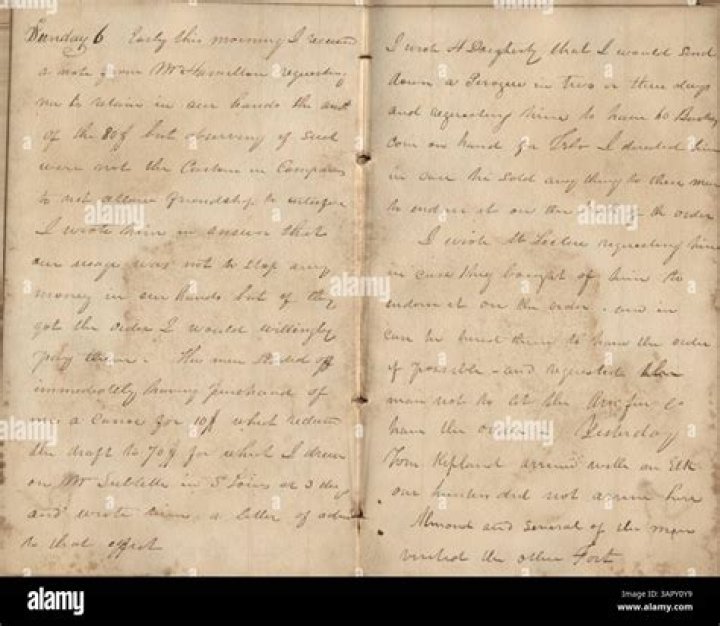 Sunday 6 Early this morning I received
a note from Mr Hamilton requesting
me to retain in our hands the amt
of the 80$ but observing if such
were not the Custom in Company
to not allow friendship to interfere
I wrote him in answer that
our usage was not to stop any
money in our hands but if they
got the order I would willingly
pay them. The men started off
immediately having purchased of
me a Canoe for 10$ which reduced
the draft to 70$ for which I drew
on Mr Sublette in St Louis at 3 day
and wrote him a letter of advice
to that effect
I wrote H Daugherty that I would send
down a Perogue in two or three days
and requesting him to have 60 Bushs
corn on hand I directed him
in case he sold anything to these men
to endorse it on the the order
I wrote Leclerc requesting him
in case they bought of him to
endorse it on the order and in
case he hired them to have the order
if possible - and requested
man not to let the
have the Yesterday
Tom Kipland arrived with an Elk
our hunters did not arrive here
Almond and several of the men
visited the other Fort
alamy
alamy
alamy
alamy
alamy
alamy
alamy
Image ID: 3APY0Y9
www.alamy.com